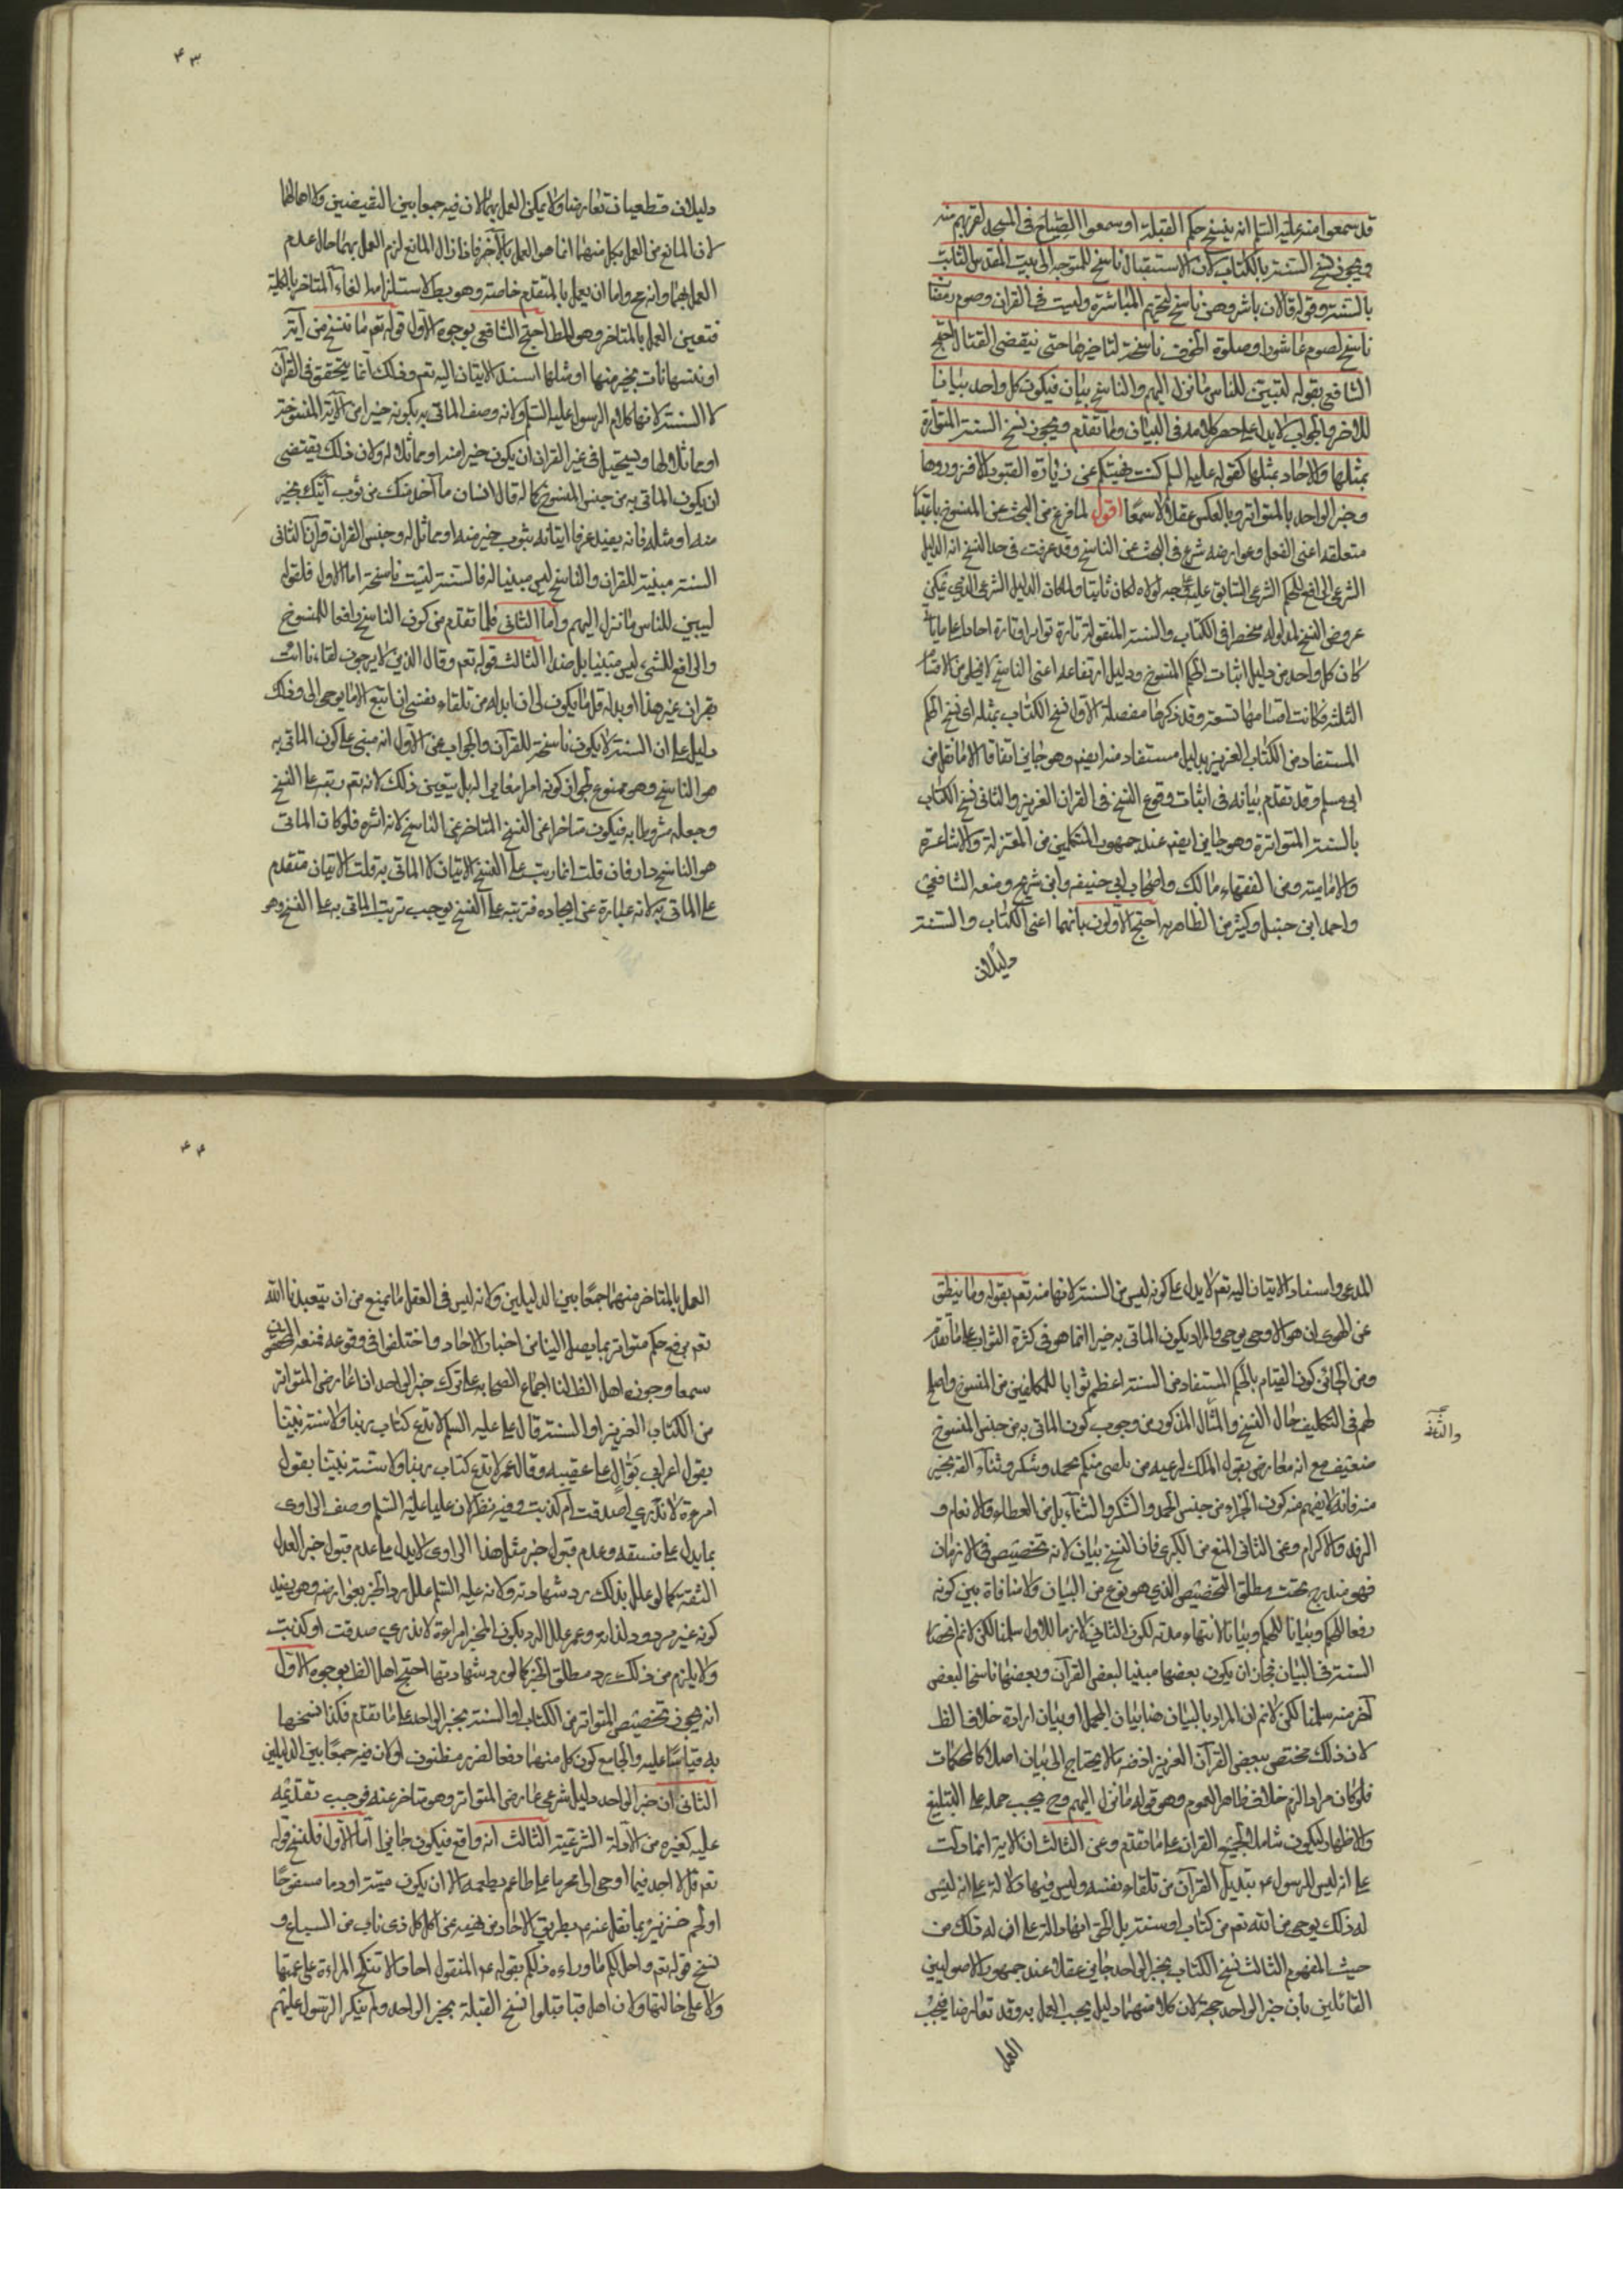 قد سمعوا منه عليه السلم انه ينسخ حكم القبلة او سمعوا الصياح فى المسجد لقربهم منه
ويجوز نسخ السنة بالكتاب لان الاستقبال ناسخ للتوجه الى بيت المقدس الثابت
بالسنة وقوله فالان باشروهن ناسخ لتحريم المباشرة وليست فى القران وصوم رمضان
ناسخ لصوم عاشورا وصلوة الخوف ناسخة لتاخيرها حتى ينقضى القتال احتج
الشافعى بقوله لتبين للناس ما نزل اليهم والناسخ بيان فيكون كل واحد بيانا
للاخر والجواب لا يدل على حصر كلامه فى البيان ولما تقدم ويجوز نسخ السنة المتواترة
بمثلها والاحاد بمثلها كقوله عليه السلم كنت نهيتكم عن زيارة القبور الا فزوروها
وخبر الواحد بالمتواتر وبالعكس عقلا لا سمعا اقول لما فرغ من البحث عن المنسوخ باعتبار
متعلقه اعنى الفعل وعوارضه شرع فى البحث عن الناسخ وقد عرفت فى حد النسخ انه الدليل
الشرعى الرافع للحكم الشرعى السابق عليه على وجه لولاه لكان ثابتا ولما كان الدليل الشرعى الذى يمكن
عروض النسخ لمدلوله منحصرا فى الكتاب والسنة المنقولة تارة تواترا وتارة احادا على ما ياتى
كان كل واحد من دليل اثبات الحكم المنسوخ ودليل ارتفاعه اعنى الناسخ لا يخلو من الاقسام
الثلثة فكانت اقسامها تسعة وقد ذكرها مفصلة الاول نسخ الكتاب بمثله اى نسخ الحكم
المستفاد من الكتاب العزيز بدليل مستفاد منه ايضا وهو جايز اتفاقا الا ما نقل عن
ابى مسلم وقد تقدم بيانه فى اثبات وقوع النسخ فى القران العزيز والثانى نسخ الكتاب
بالسنة المتواترة وهو جايز ايضا عند جمهور المتكلمين من المعتزلة والاشاعرة
والامامية ومن الفقهاء مالك واصحاب ابى حنيفة وابن شريح ومنعه الشافعى
واحمد ابن حنبل وكثير من الظاهرية احتج الاولون بانهما اعنى الكتاب والسنة
دليلان
٤٣
دليلان قطعيان تعارضا ولا يمكن العمل بهما لان فيه جمعا بين النقيضين ولا اهمالهما
لان المانع من العمل بكل منهما انما هو العمل بالآخر فاذا زال المانع لزم العمل بهما حال عدم
العمل بهما وانه مح واما ان يعمل بالمتقدم خاصة وهو بط لاستلزامه الغاء المتاخر بالكلية
فتعين العمل بالمتاخر وهو المط احتج الشافعى بوجوه الاول قوله تعم ما ننسخ من آية
او ننسها نات بخير منها او مثلها اسند الاتيان اليه تعم وذلك انما يتحقق فى القرآن
لا السنة لانها كلام الرسول عليه السلم ولانه وصف الماتى به بكونه خيرا من الآية المنسوخة
او مماثلا لها ويستحيل فى غير القران ان يكون خيرا منه او مماثلا له ولان ذلك يقتضى
ان يكون الماتى به من جنس المنسوخ كما لو قال انسان ما آخذ منك من ثوب آتيك بخير
منه او مثله فانه يفيد عرفا اتيانه بثوب خير منه او مماثل له وجنس القران قرآن الثانى
السنة مبينة للقران والناسخ ليس مبينا له فالسنة ليست ناسخة اما الاول فلقوله
ليبين للناس ما نزل اليهم واما الثانى فلما تقدم من كون الناسخ رافعا للمنسوخ
والرافع للشىء ليس مبينا بل ضد الثالث قوله تعم وقال الذين لا يرجون لقاءنا ائت
بقران غير هذا او بدله قل ما يكون لى ان ابدله من تلقاء نفسى ان اتبع الا ما يوحى الى وذلك
دليل على ان السنة لا يكون ناسخة للقرآن والجواب عن الاول انه مبنى على كون الماتى به
هو الناسخ وهو ممنوع لجواز كونه امرا مغايرا له بل يتعين ذلك لانه تعم رتبه على النسخ
وجعله مشروطا به فيكون متاخرا عن النسخ المتاخر عن الناسخ لانه اثره فلو كان الماتى
هو الناسخ دار فان قلت انما رتب على النسخ الاتيان لا الماتى به قلت الاتيان متقدم
على الماتى به لانه عبارة عن ايجاده فترتبه على النسخ يوجب ترتب الماتى به على النسخ وهو
المدعى واسناد الاتيان اليه تعم لا يدل على كونه ليس من السنة لانها منه تعم بقوله وما ينطق
عن الهوى ان هو الا وحى يوحى والمراد بكون الماتى به خيرا انما هو فى كثرة الثواب على ما تقدم
ومن الجائز كون القيام بالحكم المستفاد من السنة اعظم ثوابا للمكلفين من المنسوخ واصلح
لهم فى التكليف حال النسخ والمثال المذكور من وجوب كون الماتى به من جنس المنسوخ
ضعيف مع انه معارض بقول الملك لرعيه من يلقنى منكم بحمد وشكر وثناء القه بخير
منه فانه لا يفهم منه كون الجزاء من جنس الحمد والشكر والثناء بل من العطاء والانعام و
الرفد والاكرام وعن الثانى المنع من الكبرى فان النسخ بيان لانه تخصيص فى الازمان
فهو مندرج تحت مطلق التخصيص الذى هو نوع من البيان ولا منافاة بين كونه
رفعا للحكم وبيانا للحكم وبيانا لانتهاء مدته لكون الثانى لازما للاول سلمنا لكن لا نم انحصار
السنة فى البيان فجاز ان يكون بعضها مبينا لبعض القرآن وبعضها ناسخا لبعض
آخر منه سلمنا لكن لا نم ان المراد بالبيان هنا بيان المجمل او بيان ارادة خلاف الظ
لان ذلك مختص ببعض القرآن العزيز اذ فيه ما لا يحتاج الى بيان اصلا كالمحكمات
فلو كان مرادا لزم خلاف ظاهر العموم وهو قوله ما نزل اليهم وح يجب حمله على التبليغ
والاظهار ليكون شاملا لجميع القران على ما تقدم وعن الثالث ان الاية انما دلت
على انه ليس للرسول عم تبديل القرآن من تلقاء نفسه وليس فيها دلالة على انه ليس
له ذلك بوحى من الله تعم من كتاب او سنة بل الحق انها دالة على ان له ذلك من
حيث المفهوم الثالث نسخ الكتاب بخبر الواحد جايز عقلا عند جمهور الاصوليين
القائلين بان خبر الواحد حجة لان كلا منهما دليل يجب العمل به وقد تعارضا فيجب
العمل
٤٤
العمل بالمتاخر منهما جمعا بين الدليلين ولانه ليس فى العقل ما يمنع من ان يتعبدنا الله
تعم برفع حكم متواتر بما يصل الينا من اخبار الاحاد واختلفوا فى وقوعه فمنعه
سمعا وجوزه اهل الظ لنا اجماع الصحابه على ترك خبر الواحد اذا عارض المتواتر
من الكتاب العزيز او السنة قال على عليه السلم لا ندع كتاب ربنا ولا سنة نبينا
بقول اعرابى بوال على عقبيه وقال عمر لا ندع كتاب ربنا ولا سنة نبينا بقول
امرءة لا ندرى اصدقت ام كذبت وفيه نظر لان عليا عليه السلم وصف الراوى
بما يدل على فسقه وعدم قبول خبر مثل هذا الراوى لا يدل على عدم قبول خبر العدل
الثقة كما لو علل بذلك رد شهادته ولانه عليه السلم علل رد الخبر بعوارضه وهو يفيد
كونه غير مردود لذاته وعمر علل الرد بكون المخبر امراءة لا ندرى صدقت او كذبت
ولا يلزم من ذلك رد مطلق الخبر كما لو رد شهادتها احتج اهل الظ بوجوه الاول
انه يجوز تخصيص المتواتر من الكتاب او السنة بخبر الواحد على ما تقدم فكذا نسخها
به قياسا عليه والجامع كون كل منهما دفعا لضرر مظنون اولان فيه جمعا بين الدليلين
الثانى ان خبر الواحد دليل شرعى عارض المتواتر وهو متاخر عنه فوجب تقديمه
عليه كغيره من الادلة الشرعية الثالث انه واقع فيكون جايزا اما الاول فلنسخ قوله
تعم قل لا اجد فيما اوحى الى محرما على طاعم يطعمه الا ان يكون ميتة او دما مسفوحا
او لحم خنزير بما نقل عنه عم بطريق الاحاد من نهيه عن اكل كل ذى ناب من السباع و
نسخ قوله تعم واحل لكم ما وراء ذلكم بقوله عم المنقول احادا لا تنكح المراءة على عمتها
ولا على خالتها ولان اهل قبا قبلوا نسخ القبلة بخبر الواحد ولم ينكر الرسول عليهم